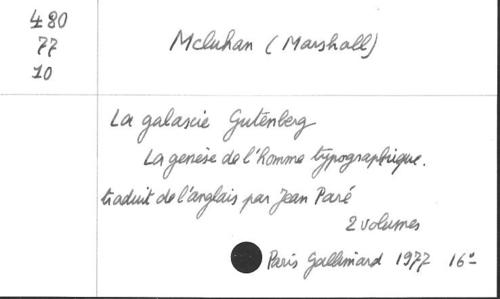 480
77
10
Mcluhan (Marshall)
La galaxie Gutenberg
La genèse de l'homme typographique.
traduit de l'anglais par Jean Paré
2 volumes
Paris Gallimard 1977 16°